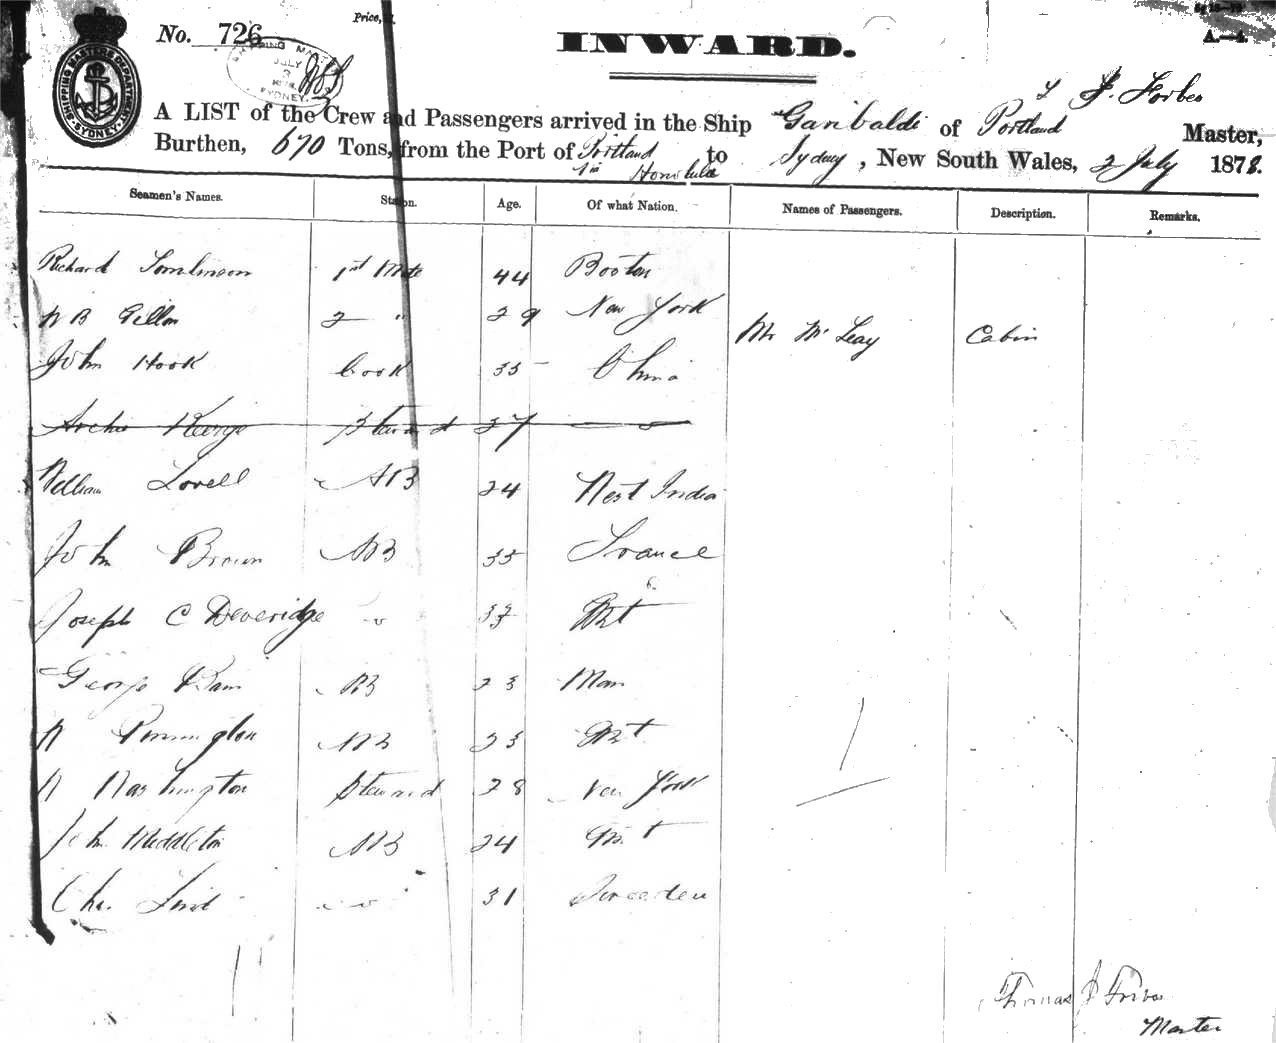 No. 726
Price,
A.—4.
INWARD.
SHIPPING MASTER'S DEPARTMENT
SYDNEY
JULY
SYDNEY
T J. Forbes
A LIST of the Crew and Passengers arrived in the Ship Garibaldi of Portland Master,
Burthen, 670 Tons, from the Port of Portland to Sydney, New South Wales, 2 July 1878.
via Honolulu
Seamen's Names. Station. Age. Of what Nation. Names of Passengers. Description. Remarks.
Richard Tomlinson 1st Mate 44 Boston
W B Gillon 2 " 29 New York
Mr Mc Leay Cabin
John Hook Cook 35 China
Archie George Steward 27 "
William Lovell AB 24 West India
John Brown AB 35 France
Joseph C Deveridge " 33 Bt
George Bain AB 23 Man
W Pennington AB 23 Bt
W Washington Steward 28 New York
John Middleton AB 24 Bt
Chs. Lind " 31 Sweden
Thomas J Forbes
Master